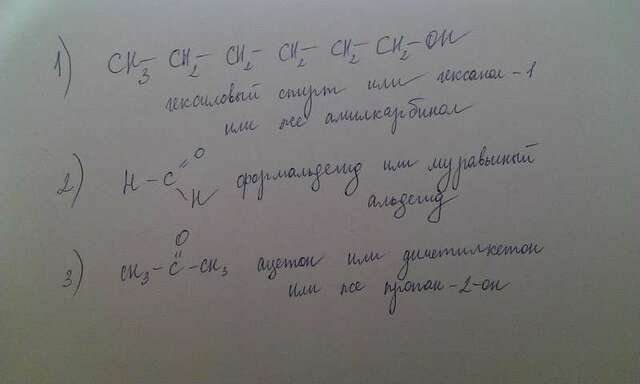 1) CH3 - CH2 - CH2 - CH2 - CH2 - CH2 - OH
гексиловый спирт или гексанол-1
или же амилкарбинол
O
2) H - C
H
формальдегид или муравьиный
альдегид
O
3) CH3 - C - CH3 ацетон или диметилкетон
или же пропан-2-он